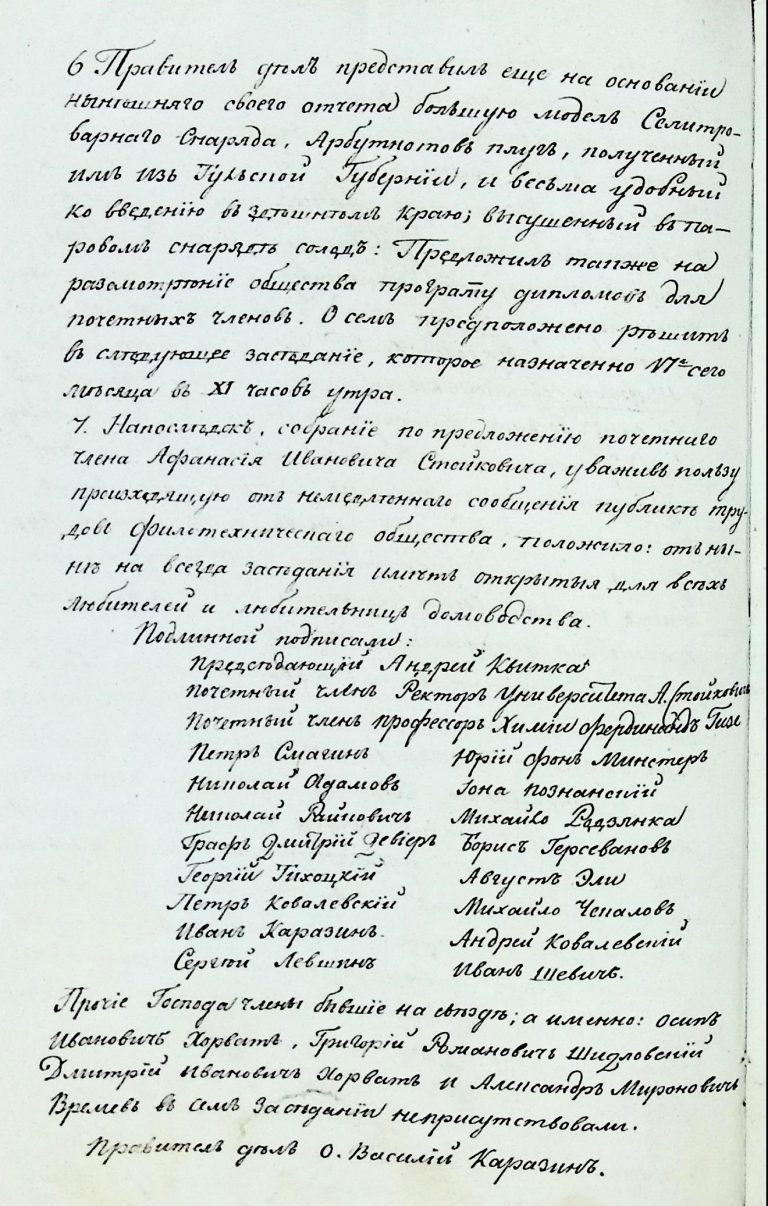 6 Правитель дѣлъ представилъ еще на основаніи
нынѣшняго своего отчета большую модель Селитро-
варнаго Снаряда, Арбутнотовъ плугъ, полученный
имъ изъ Тульской Губерніи, и весьма удобный
ко введенію въ здѣшнѣмъ краю; высушенный въ па-
ровомъ снарядѣ солодъ: Предложилъ также на
разсмотрѣніе общества програму дипломовъ для
почетныхъ членовъ. О семъ предположено рѣшить
въ слѣдующее засѣданіе, которое назначенно VIго сего
мѣсяца въ XI часовъ утра.
7. Напослѣдокъ, собраніе по предложенію почетнаго
члена Афанасія Ивановича Стойковича, уваживъ пользу
произходящую отъ немѣдленнаго сообщенія публикѣ тру-
довъ филотехническаго общества, положило: отъ ны-
нѣ на всегда засѣданія имѣть открытыя для всѣхъ
любителей и любительницъ домоводства.
Подлинной подписали:
Предсѣдающій Андрей Квитка
почетный членъ Ректоръ Университета А. Стойковичь
Почетный членъ профессоръ Химіи Фердинандъ Гизе
Петръ Смагинъ Юрій фонъ Минстеръ
Николай Адамовъ Іона Познанскій
Николай Райновичь Михайло Радзянка
Графъ Дмитрій Девіеръ Борисъ Герсевановъ
Георгій Тихоцкій Августъ Эли
Петръ Ковалевскій Михайло Чепаловъ
Иванъ Каразинъ Андрей Ковалевскій
Сергѣй Левшинъ Иванъ Шевичь.
Прочіе Господа члены бывшіе на съѣздѣ; а именно: Осипъ
Ивановичь Хорватъ, Григорій Романовичь Шидловскій
Дмитрій Ивановичь Хорватъ и Александръ Мироновичь
Времевъ въ семъ засѣданіи неприсутствовали.
Правитель дѣлъ О. Василій Каразинъ.